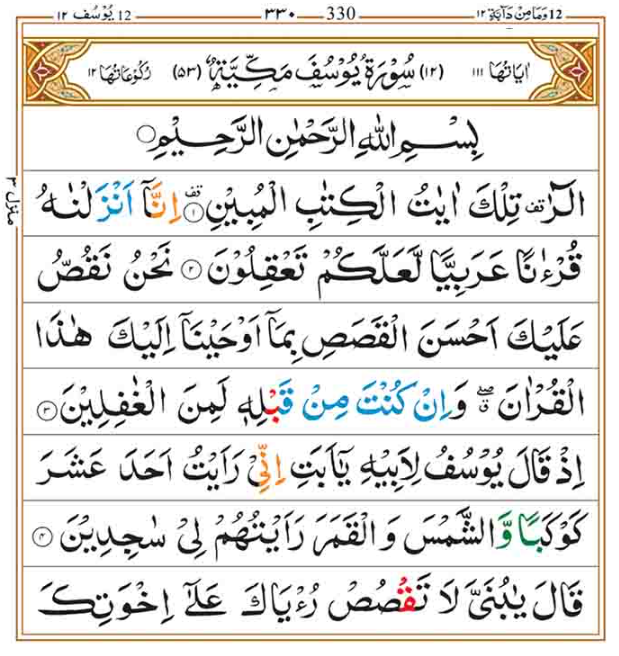 ١٢ يُوْسُف 12 ٣٣٠ 330 ١٢ وَمَا مِنْ دَآبَّة 12
اٰيَاتُهَا ١١١ (١٢) سُوْرَةُ يُوْسُفَ مَكِّيَّةٌ (٥٣) رُكُوْعَاتُهَا ١٢
بِسْمِ اللّٰهِ الرَّحْمٰنِ الرَّحِيْمِ
الٓرٰ ࣞقف تِلْكَ اٰيٰتُ الْكِتٰبِ الْمُبِيْنِ ۝١ قف اِنَّاۤ اَنْزَلْنٰهُ
قُرْءٰنًا عَرَبِيًّا لَّعَلَّكُمْ تَعْقِلُوْنَ ۝٢ نَحْنُ نَقُصُّ
عَلَيْكَ اَحْسَنَ الْقَصَصِ بِمَاۤ اَوْحَيْنَاۤ اِلَيْكَ هٰذَا
الْقُرْاٰنَ ۖق وَاِنْ كُنْتَ مِنْ قَبْلِهٖ لَمِنَ الْغٰفِلِيْنَ ۝٣
اِذْ قَالَ يُوْسُفُ لِاَبِيْهِ يٰۤاَبَتِ اِنِّيْ رَاَيْتُ اَحَدَ عَشَرَ
كَوْكَبًا وَّالشَّمْسَ وَالْقَمَرَ رَاَيْتُهُمْ لِيْ سٰجِدِيْنَ ۝٤
قَالَ يٰبُنَيَّ لَا تَقْصُصْ رُءْيَاكَ عَلٰۤى اِخْوَتِكَ
منزل ٣